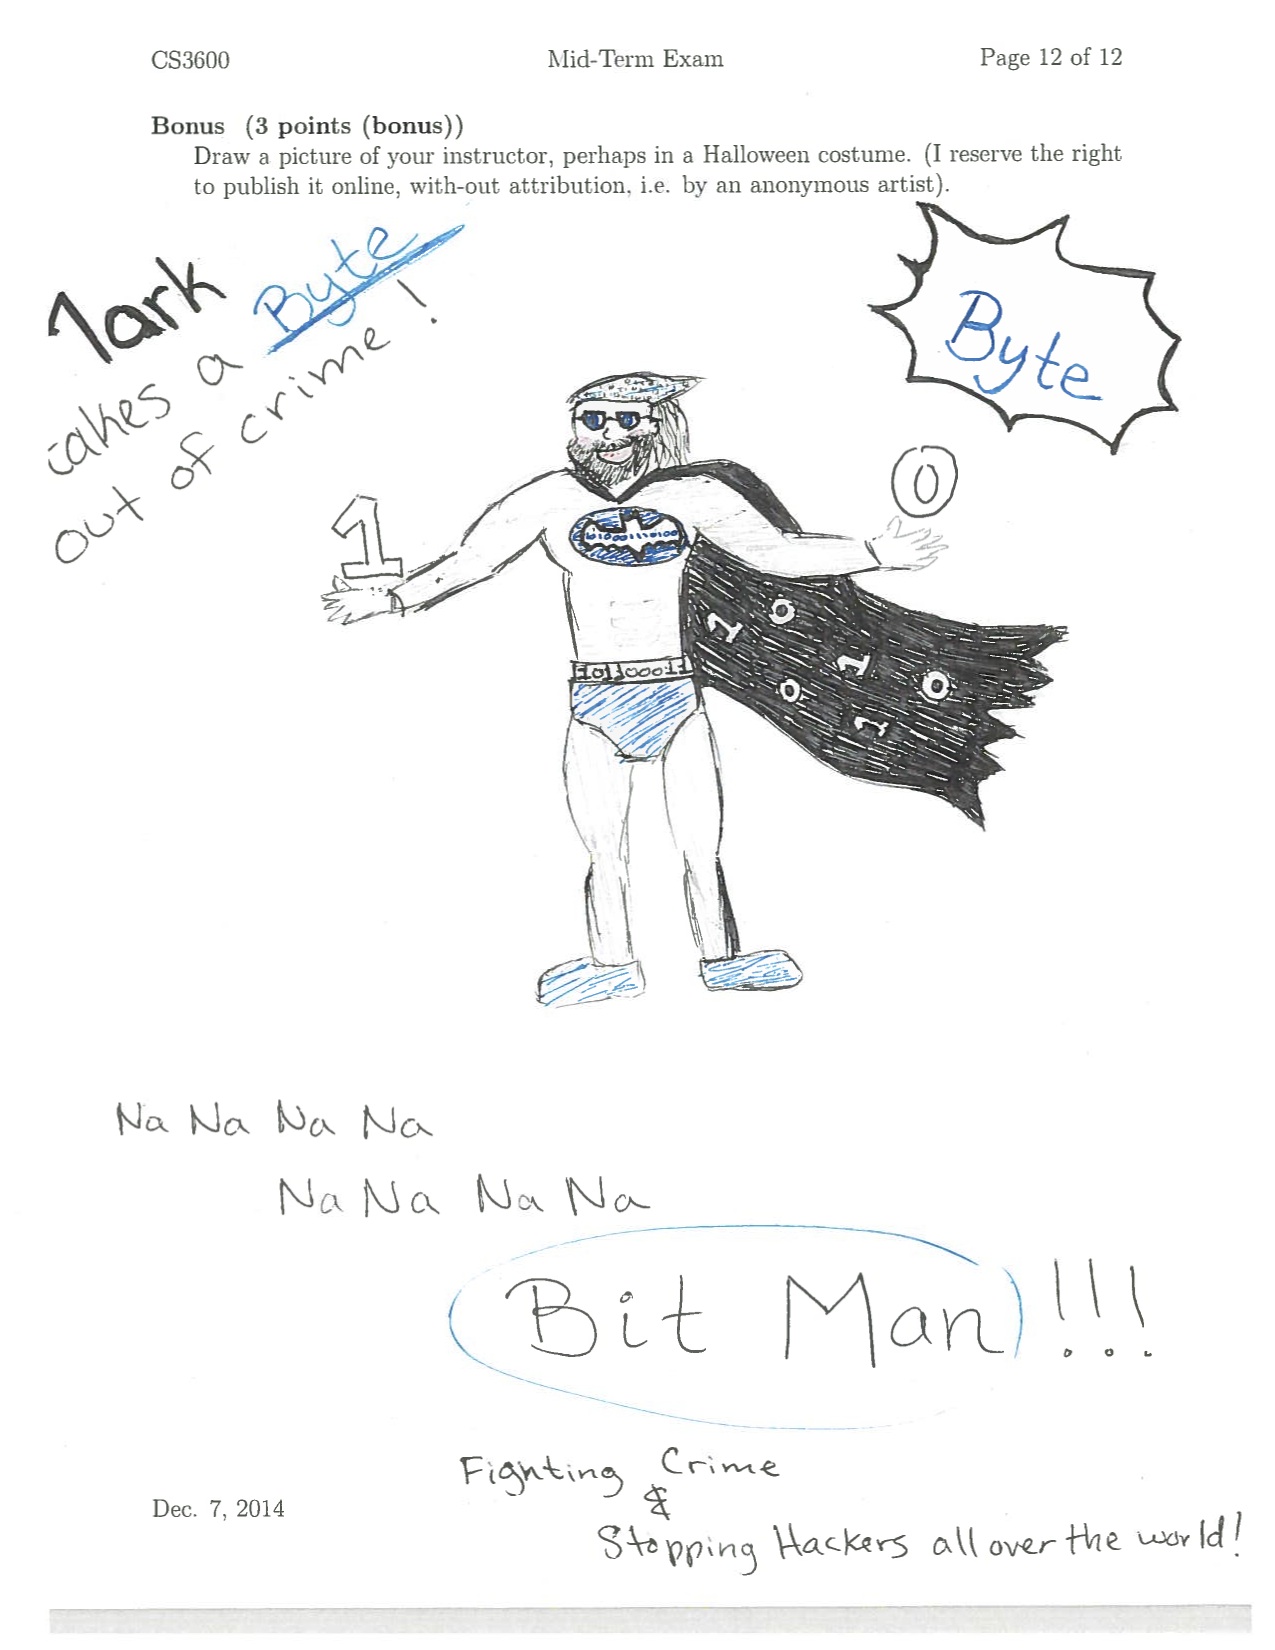 CS3600 Mid-Term Exam Page 12 of 12
Bonus (3 points (bonus))
Draw a picture of your instructor, perhaps in a Halloween costume. (I reserve the right
to publish it online, with-out attribution, i.e. by an anonymous artist).
1ark
takes a Byte
out of crime!
Byte
1
0
1 0
1 0
0 1
Na Na Na Na
Na Na Na Na
Bit Man!!!
Fighting Crime
&
Stopping Hackers all over the world!
Dec. 7, 2014